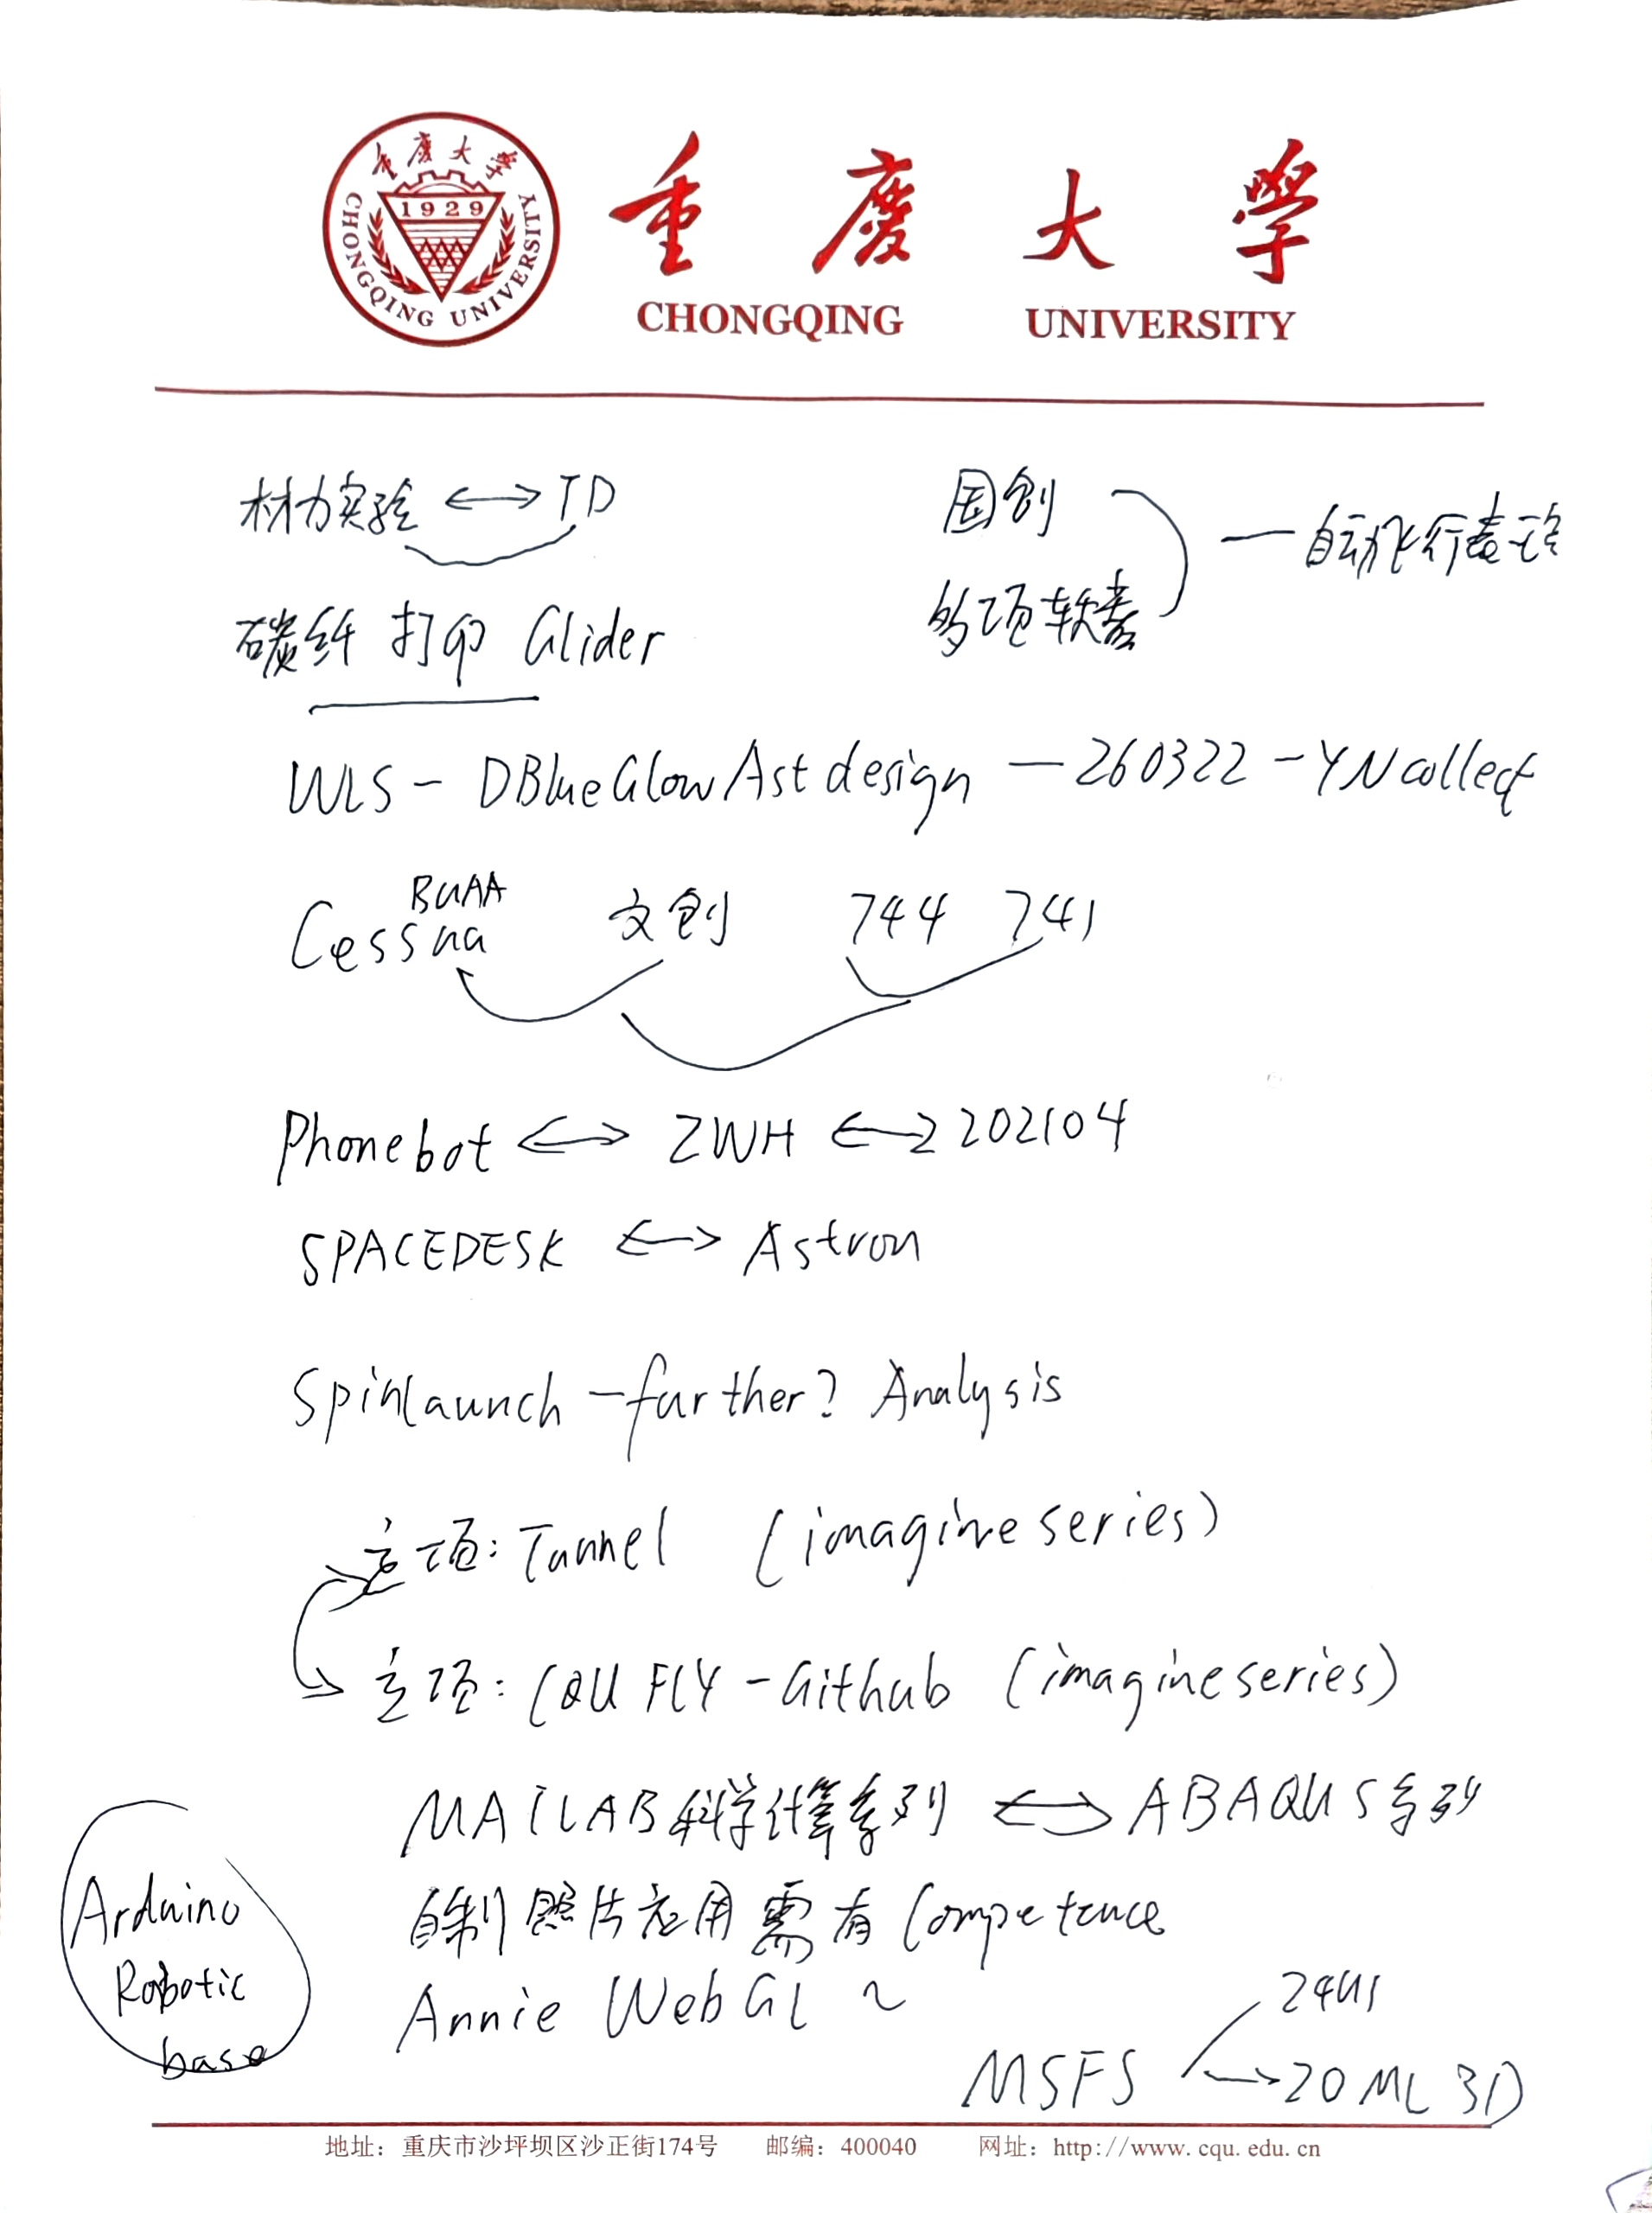 重庆大学
CHONGQING UNIVERSITY
1929
重庆大学
CHONGQING UNIVERSITY
材力实验 ⟷ TD
国创
多项软著
— 自动飞行
碳纤 打印 Glider
WLS - DBlueGlowAstdesign — 260322 - YNcollect
BUAA
Cessna 文创 744 741
Phonebot ⟷ ZWH ⟷ 202104
SPACEDESK ⟷ Astron
Spinlaunch - further? Analysis
主项: Tunnel (imagine series)
主项: CQU FLY - Github (imagine series)
MATLAB科学计算系列 ⟷ ABAQUS系列
自制照片应用需有Competence
Annie WebGL ~
Arduino
Robotic
base
MSFS
→ 20 ML 3D
地址：重庆市沙坪坝区沙正街174号 邮编：400040 网址：http://www.cqu.edu.cn